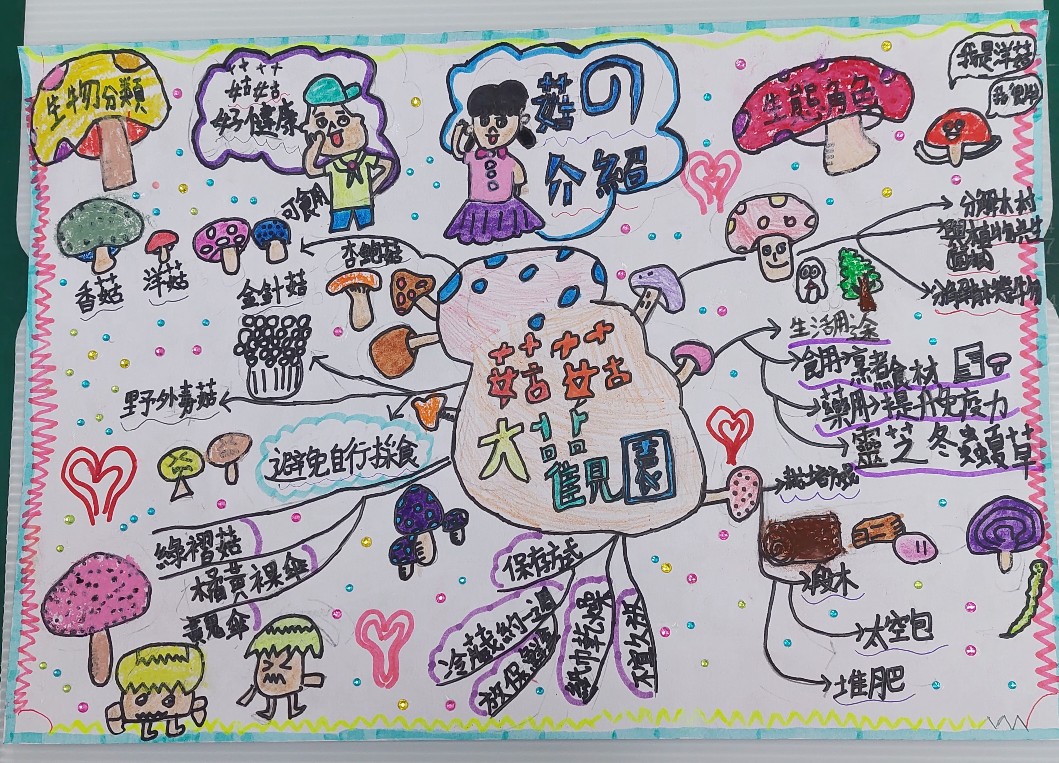 生物分類
菇菇
好健康
菇の
介紹
生態角色
我是洋菇
可食用
香菇
洋菇
金針菇
杏鮑菇
野外毒菇
避免自行採食
綠褶菇
橘黃裸傘
黃鬼傘
菇菇
大觀園
分解木材
與植物共生
生活用途
食用→烹煮食材
藥用→提升免疫力
靈芝冬蟲夏草
栽培方式
段木
太空包
堆肥
保存方式
冷藏約一週
放保鮮盒
紙巾乾燥
不宜久放